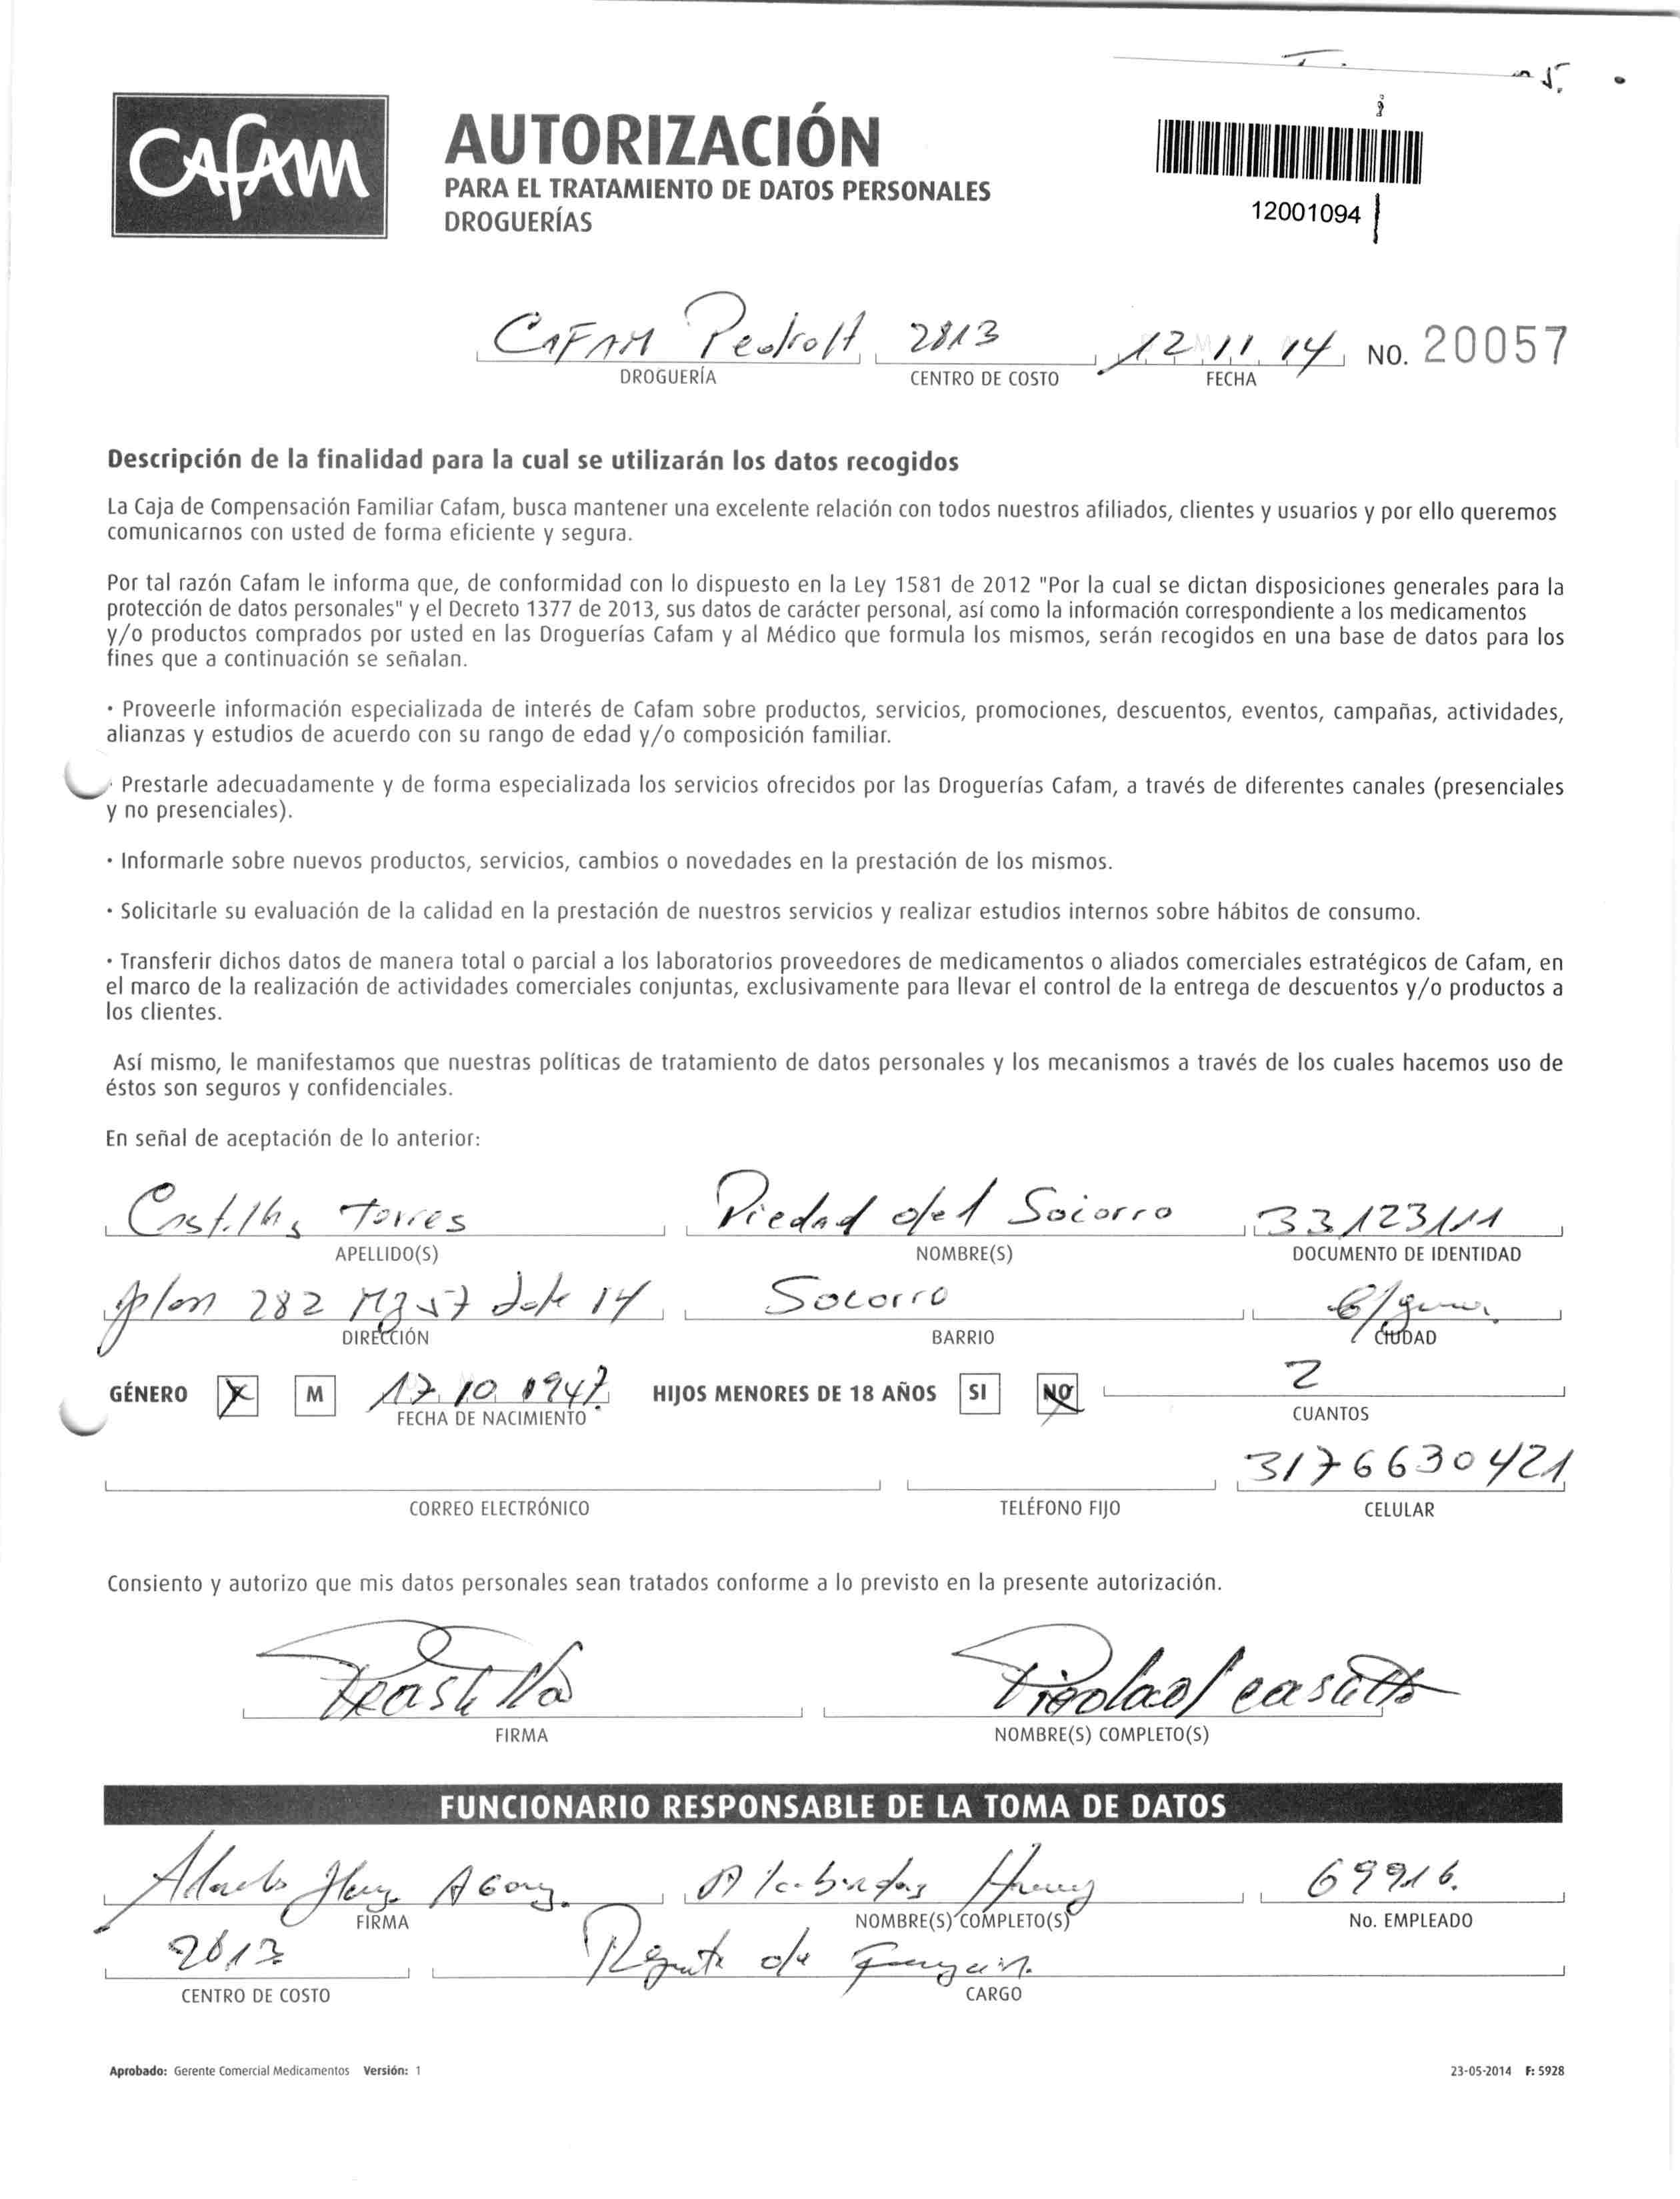 CAFAM
AUTORIZACIÓN
PARA EL TRATAMIENTO DE DATOS PERSONALES
DROGUERÍAS
12001094
CAFAM 2813 12 11 14 NO. 20057
DROGUERÍA CENTRO DE COSTO FECHA
Descripción de la finalidad para la cual se utilizarán los datos recogidos
La Caja de Compensación Familiar Cafam, busca mantener una excelente relación con todos nuestros afiliados, clientes y usuarios y por ello queremos
comunicarnos con usted de forma eficiente y segura.
Por tal razón Cafam le informa que, de conformidad con lo dispuesto en la Ley 1581 de 2012 "Por la cual se dictan disposiciones generales para la
protección de datos personales" y el Decreto 1377 de 2013, sus datos de carácter personal, así como la información correspondiente a los medicamentos
y/o productos comprados por usted en las Droguerías Cafam y al Médico que formula los mismos, serán recogidos en una base de datos para los
fines que a continuación se señalan.
· Proveerle información especializada de interés de Cafam sobre productos, servicios, promociones, descuentos, eventos, campañas, actividades,
alianzas y estudios de acuerdo con su rango de edad y/o composición familiar.
· Prestarle adecuadamente y de forma especializada los servicios ofrecidos por las Droguerías Cafam, a través de diferentes canales (presenciales
y no presenciales).
· Informarle sobre nuevos productos, servicios, cambios o novedades en la prestación de los mismos.
· Solicitarle su evaluación de la calidad en la prestación de nuestros servicios y realizar estudios internos sobre hábitos de consumo.
· Transferir dichos datos de manera total o parcial a los laboratorios proveedores de medicamentos o aliados comerciales estratégicos de Cafam, en
el marco de la realización de actividades comerciales conjuntas, exclusivamente para llevar el control de la entrega de descuentos y/o productos a
los clientes.
Así mismo, le manifestamos que nuestras políticas de tratamiento de datos personales y los mecanismos a través de los cuales hacemos uso de
éstos son seguros y confidenciales.
En señal de aceptación de lo anterior:
Torres Piedad del Socorro 33123111
APELLIDO(S) NOMBRE(S) DOCUMENTO DE IDENTIDAD
plan 282 Mz 57 Lote 14 Socorro C/gena
DIRECCIÓN BARRIO CIUDAD
GÉNERO X M 17 10 1947 HIJOS MENORES DE 18 AÑOS SI NO 2
FECHA DE NACIMIENTO CUANTOS
3176630421
CORREO ELECTRÓNICO TELÉFONO FIJO CELULAR
Consiento y autorizo que mis datos personales sean tratados conforme a lo previsto en la presente autorización.
Piedad
FIRMA NOMBRE(S) COMPLETO(S)
FUNCIONARIO RESPONSABLE DE LA TOMA DE DATOS
69916.
FIRMA NOMBRE(S) COMPLETO(S) No. EMPLEADO
2813 de
CENTRO DE COSTO CARGO
Aprobado: Gerente Comercial Medicamentos Versión: 1 23-05-2014 F: 5928